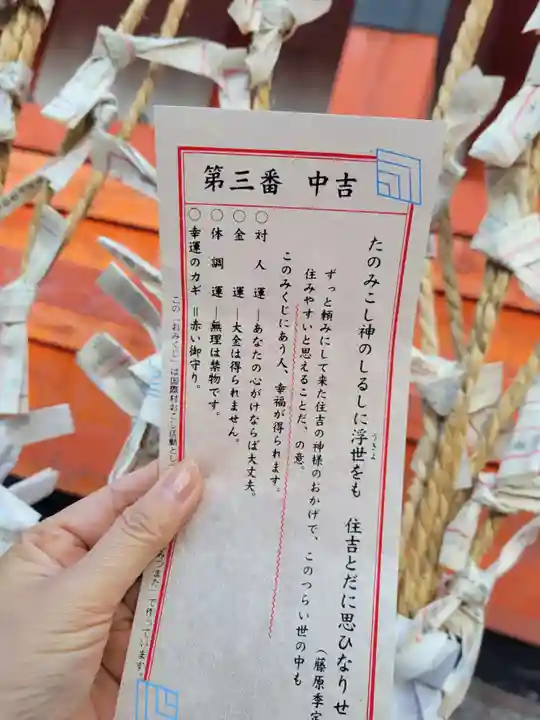 第三番　中吉
たのみこし神のしるしに浮世をも　住吉とだに思ひなりせ
うきよ
ずっと頼みにして来た住吉の神様のおかげで、このつらい世の中も
住みやすいと思えることだ、の意。
（藤原季定
このみくじにあう人、幸福が得られます。
〇対人運―あなたの心がけならば大丈夫。
〇金運―大金は得られません。
〇体調運―無理は禁物です。
〇幸運のカギ＝赤い御守り。
この「おみくじ」は国際村おこし活動とし
みつまた」で作っています。